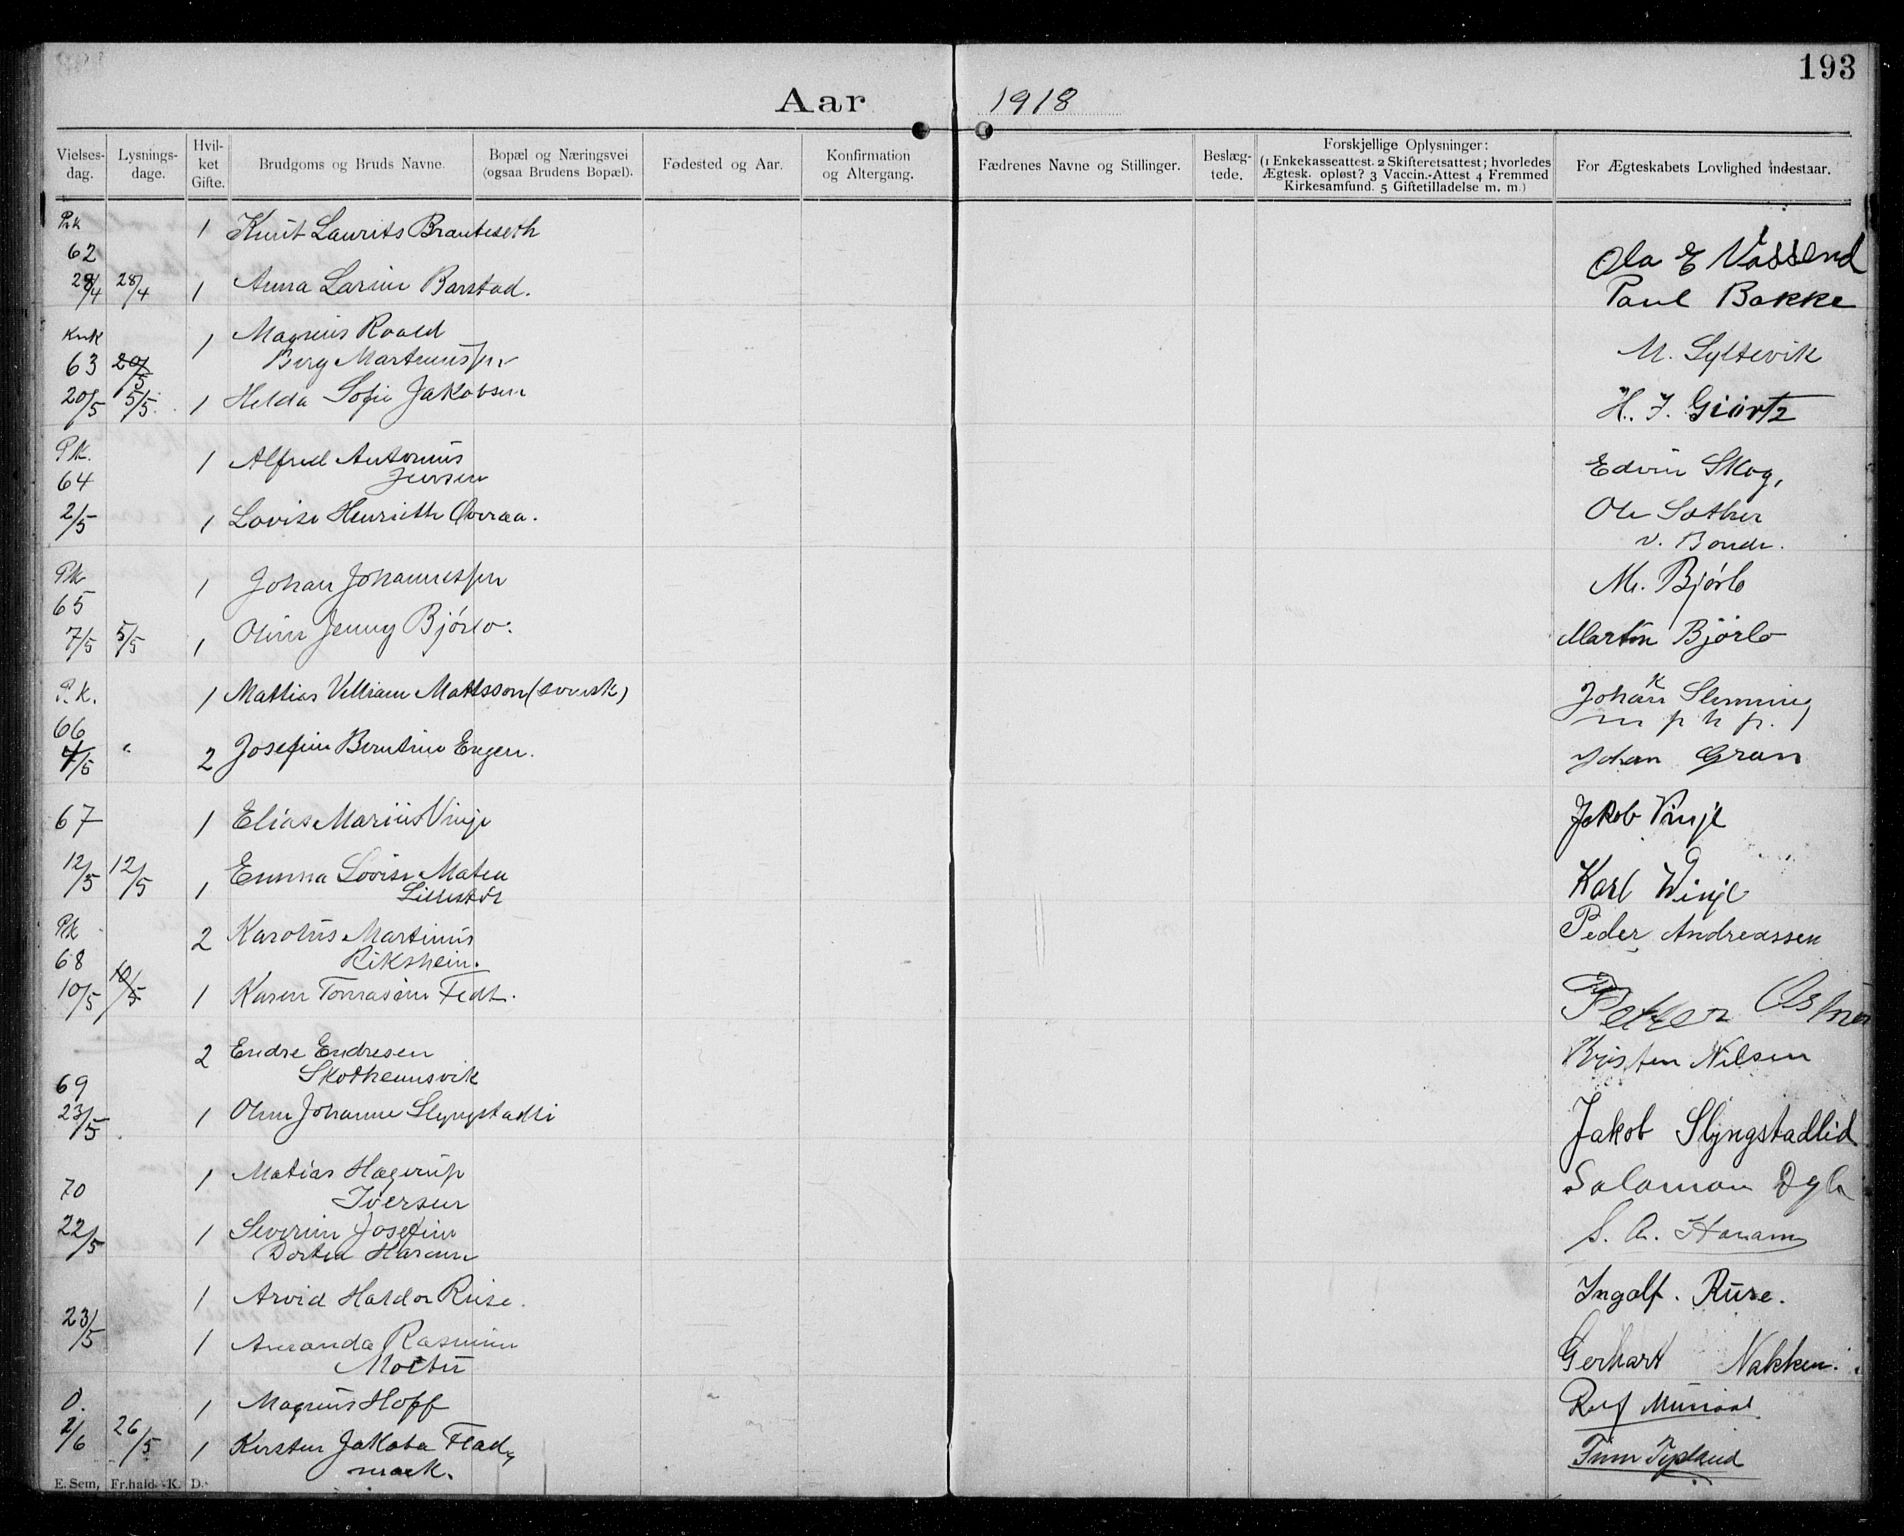 193
Aar 1918
Vielses-dag. Lysnings-dage. Hvil-ket Gifte. Brudgoms og Bruds Navne. Bopæl og Næringsvei (ogsaa Brudens Bopæl). Fødested og Aar. Konfirmation og Altergang. Fædrenes Navne og Stillinger. Beslæg-tede. Forskjellige Oplysninger: (1 Enkekasseattest. 2 Skifteretsattest; hvorledes Ægtesk. opløst? 3 Vaccin.-Attest 4 Fremmed Kirkesamfund. 5 Giftetilladelse m. m.) For Ægteskabets Lovlighed indestaar.
1 Knut Laurits Brauteseth
62 Ola E Vassend
28/4 28/4 1 Anna Larine Barstad.
Paul Bakke
1 Magnus Roald
63 20/5 Berg Martinussen M. Syltevik
20/5 5/5. 1 Helda Sofie Jakobsen H. J. Giørtz
P.K. 1 Alfred Antonius
64 Jensen Edvin Skog,
2/5 1 Lovise Henriette Overaa. Ole Sather
v. Bonde.
1 Johan Johannessen M. Bjørlo
65
7/5 5/5 1 Oline Jenny Bjørlo. Martin Bjørlo
P.K. 1 Mattias Villiam Mattsson (svensk) Johan Slemming
m p h p.
66
4/5 " 2 Josefine Berntine Engen. Johan Gran
67 1 Elias Marius Vinje Jakob Vinje
12/5 12/5 1 Emma Lovise Matea Karl Winje
Lillestøl
2 Karolus Martinus Peder Andreassen
68 Rikshein.
10/5 10/5 1 Karen Tomasine Fedt. Petter
2 Endre Endresen Kristen Nilsen
69 Skotheimsvik
23/5 1 Oline Johanne Slyngstadli Jakob Slyngstadlid
1 Matias Hagerup
70 Iversen Salamon
22/5 1 Severine Josefine S. A. Haram
Dortea Haram
1 Arvid Haldor Ruse. Ingolf. Ruse.
23/5
1 Amanda Rasmine Gerhart Nakken.
0. 1 Magnus Hoff
2/6 26/5 1 Kirsten Jakoba Flad
mark.
E. Sem, Fr.hald - K. D.